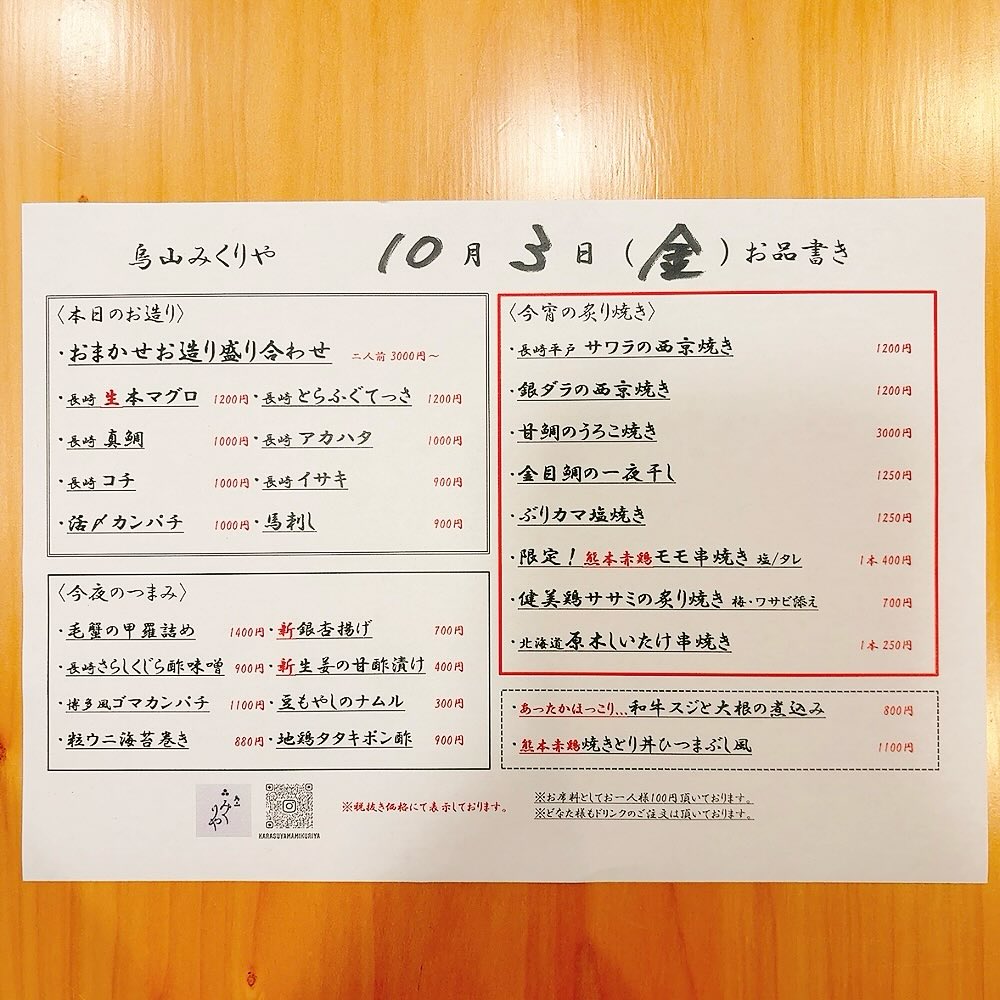 烏山みくりや 10月3日(金)お品書き
〈本日のお造り〉
・おまかせお造り盛り合わせ 二人前 3000円〜
・長崎 生本マグロ 1200円
・長崎 とらふぐてっさ 1200円
・長崎 真鯛 1000円
・長崎 アカハタ 1000円
・長崎 コチ 1000円
・長崎 イサキ 900円
・活〆カンパチ 1000円
・馬刺し 900円
〈今夜のつまみ〉
・毛蟹の甲羅詰め 1400円
・新銀杏揚げ 700円
・長崎さらしくじら酢味噌 900円
・新生姜の甘酢漬け 400円
・博多風ゴマカンパチ 1100円
・豆もやしのナムル 300円
・粒ウニ海苔巻き 880円
・地鶏タタキポン酢 900円
〈今宵の炙り焼き〉
・長崎平戸 サワラの西京焼き 1200円
・銀ダラの西京焼き 1200円
・甘鯛のうろこ焼き 3000円
・金目鯛の一夜干し 1250円
・ぶりカマ塩焼き 1250円
・限定！熊本赤鶏モモ串焼き 塩/タレ 1本 400円
・健美鶏ササミの炙り焼き 梅・ワサビ添え 700円
・北海道原木しいたけ串焼き 1本 250円
・あったかほっこり…和牛スジと大根の煮込み 800円
・熊本赤鶏焼きとり丼ひつまぶし風 1100円
みくりや
KARASUYAMAMIKURIYA
※税抜き価格にて表示しております。
※お席料としてお一人様100円頂いております。
※どなた様もドリンクのご注文は頂いております。